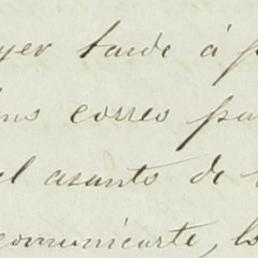 yer tarde á p
correo pa
el asunto de
comunicarte, lo